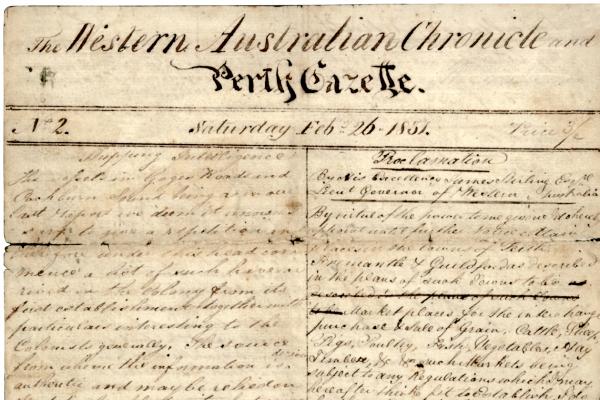 The Western Australian Chronicle and
Perth Gazette.
No 2. Saturday Feb 26. 1831. Price 3/
Shipping Intelligence
The vessels in Gages Roads and
Cockburn Sound being as in our
last report we deem it
to give a repetition
under this head com
mence a list of such
in the Colony from its
first establishment together with
particulars interesting to the
Colonists generally. The source
from whence the information is
authentic and may be relied on
Proclamation
By His Excellency James Stirling Esqre
Lieut Governor of Western Australia
By virtue of the power to me given I do hereby
appoint
places in the towns of Perth
Fremantle & Guildford as described
in the plans of such Towns to be
described in the plans of such Towns
Market places for the interchange
purchase & Sale of Grain, Cattle, Sheep,
Pigs, Poultry, Fish, Vegetables, Hay
Timber, & & such Markets being
subject to any Regulations which I may
hereafter think fit to Establish. I do